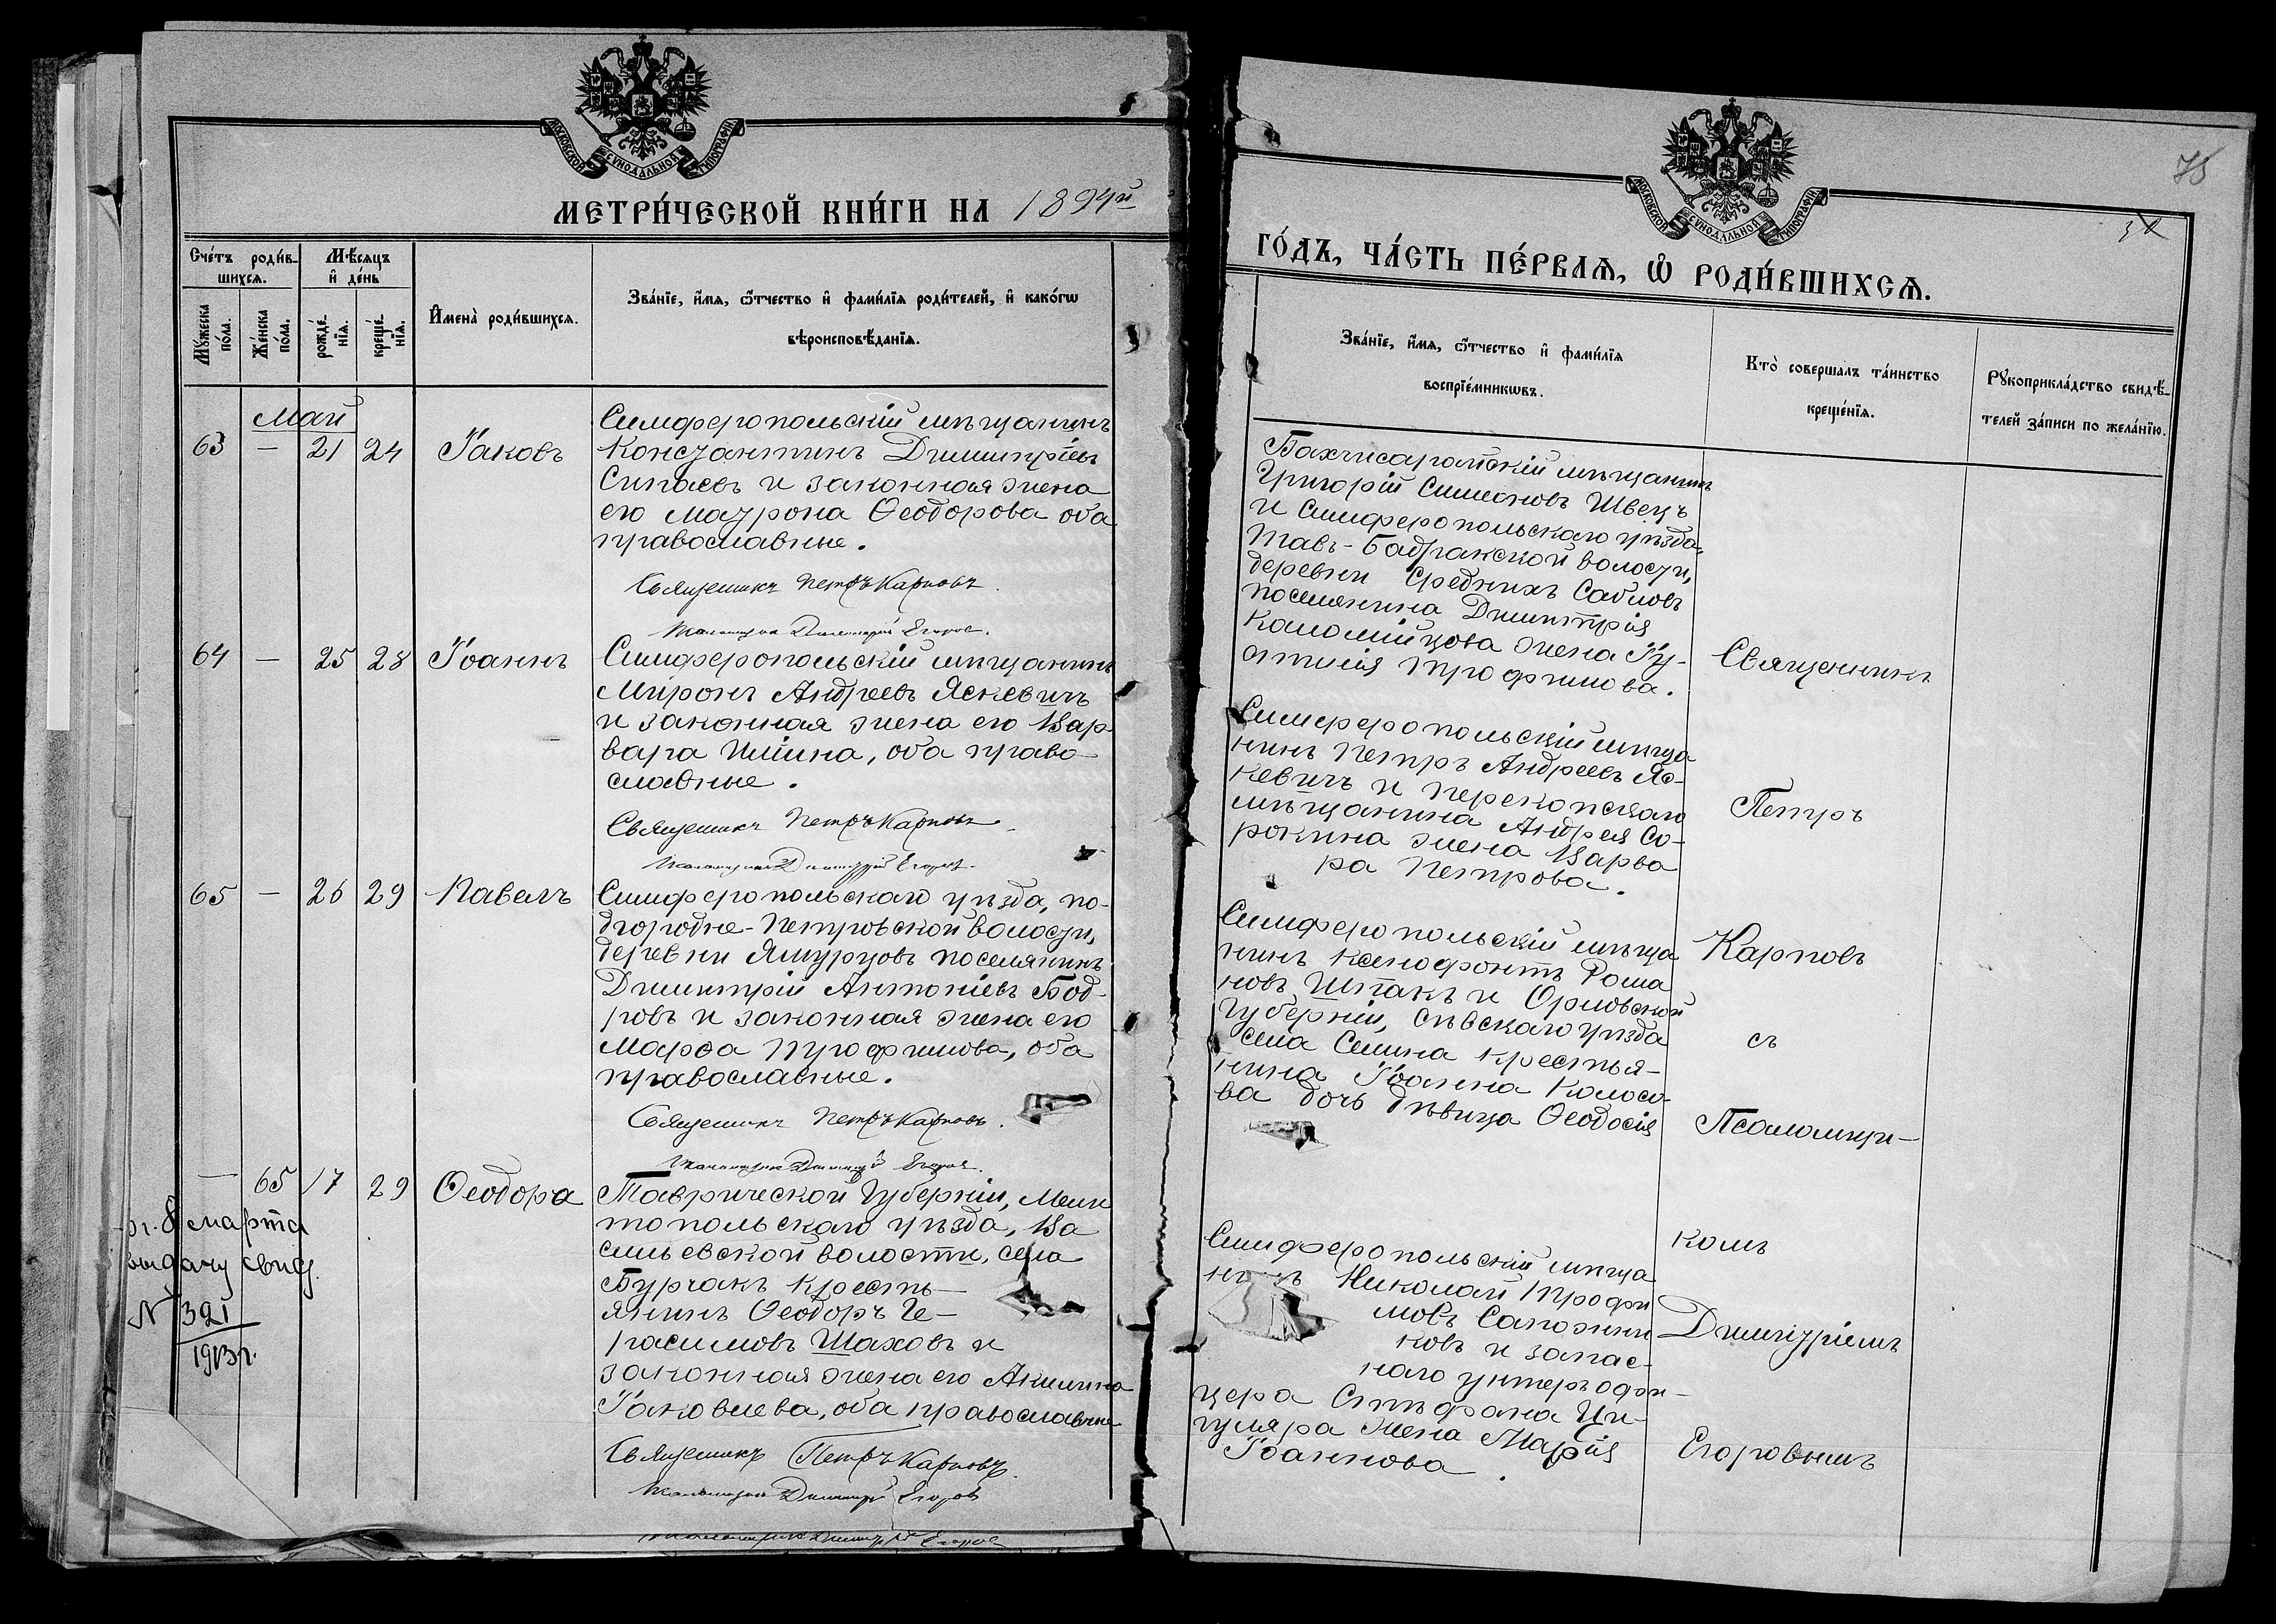 МОСКОВСКОЙ СѴНОДАЛЬНОЙ ТИПОГРАФІИ
МЕТРИ́ЧЕСКОЙ КНИ́ГИ НА 1894й
Сче́тъ роди́в-
шихсѧ.
Мѣ́сѧцъ
и҆ де́нь
Мꙋ́жеска
по́ла.
Же́нска
по́ла.
рожде́-
нїѧ.
креще́-
нїѧ.
И҆мена̀ роди́вшихсѧ.
Зва́нїе, и҆́мѧ, ѻ҆́тчество и҆ фами́лїѧ роди́телей, и҆ како́гѡ
вѣроисповѣ́данїѧ.
Май
63 — 21 24 Іаковъ
Симферопольскій мѣщанинъ
Константинъ Димитріевъ
Сипаевъ и законная жена
его Матрона Ѳеодорова оба
православные.
Священникъ Петръ Карповъ.
Псаломщикъ Димитрій Егоров.
64 — 25 28 Іоаннъ
Симферопольскій мѣщанинъ
Миронъ Андреевъ Яскевичъ
и законная жена его Вар-
вара Ильина, оба право-
славные.
Священникъ Петръ Карповъ
Псаломщикъ Димитрій Егоров.
65 — 26 29 Павелъ
Симферопольскаго уѣзда, по-
дгородне-Петровской волости,
деревни Ямурцовъ поселянинъ
Димитрій Антоніевъ Бод-
ровъ и законная жена его
Марѳа Трофимова, оба
православные.
Священникъ Петръ Карповъ.
Псаломщикъ Димитрій Егоров.
— 65 17 29 Ѳеодора
Таврической Губерніи, Мели
топольскаго уѣзда, Ва
сильевской волости, села
Бурчакъ кресть-
янинъ Ѳеодоръ Ге-
расимовъ Шаховъ и
законная жена его Акилина
Іаковлева, оба православные
Священникъ Петръ Карповъ.
Псаломщикъ Димитрій Егоровъ
8 марта
выдачу свид.
№ 321
1913 г.
Псаломщикъ Димитрій Егоров
75
МОСКОВСКОЙ СѴНОДАЛЬНОЙ ТИПОГРАФІИ
ГО́ДЪ, ЧА́СТЬ ПЕ́РВАѦ, Ѡ҆ РОДИ́ВШИХСѦ.
Зва́нїе, и҆́мѧ, ѻ҆́тчество и҆ фами́лїѧ
воспрїе́мникѡвъ.
Кто̀ совершалъ та́инство
креще́нїѧ.
Рꙋкоприкла́дство свидѣ́-
телей за́писи по жела́нїю.
Бахчисарайскій мѣщанинъ
Григорій Симоновъ Швецъ
и Симферопольскаго уѣзда,
Тавъ-Бадракской волости,
деревни Среднихъ Сабловъ
поселянина Димитрія
Коломійцова жена Іу-
стинія Трофимова.
Симферопольскій мѣща
нинъ Петръ Андреевъ Яс-
кевичъ и перекопскаго
мѣщанина Андрея Со-
рокина жена Варва
ра Петрова.
Симферопольскій мѣща
нинъ Ксенофонтъ Рома
новъ Шпакъ и Орловской
Губерніи, Сѣвскаго уѣзда
села Семина крестья-
нина Іоанна Колосо-
ва дочь дѣвица Ѳеодосія
Симферопольскій мѣща
нинъ Николай Трофи
мовъ Сапожни
ковъ и запас-
наго унтеръ офи-
цера Стефана Ци-
гуляра жена Марія
Іоаннова.
Священникъ
Петръ
Карповъ
съ
Псаломщи-
комъ
Димитріемъ
Егоровымъ